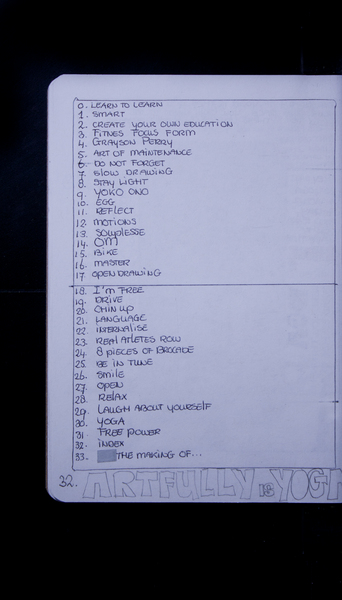 0. LEARN TO LEARN
1. SMART
2. CREATE YOUR OWN EDUCATION
3. FITNES FOCUS FORM
4. GRAYSON PERRY
5. ART OF MAINTENANCE
6. DO NOT FORGET
7. SLOW DRAWING
8. STAY LIGHT
9. YOKO ONO
10. EGG
11. REFLECT
12. MOTIONS
13. SOUPLESSE
14. OM
15. BIKE
16. MASTER
17. OPEN DRAWING
18. I'M FREE
19. DRIVE
20. CHIN UP
21. LANGUAGE
22. INTERNALISE
23. REAL ATLETES ROW
24. 8 PIECES OF BROCADE
25. BE IN TUNE
26. SMILE
27. OPEN
28. RELAX
29. LAUGH ABOUT YOURSELF
30. YOGA
31. FREE POWER
32. INDEX
33. THE MAKING OF...
32. ARTFULLY IS YOGA